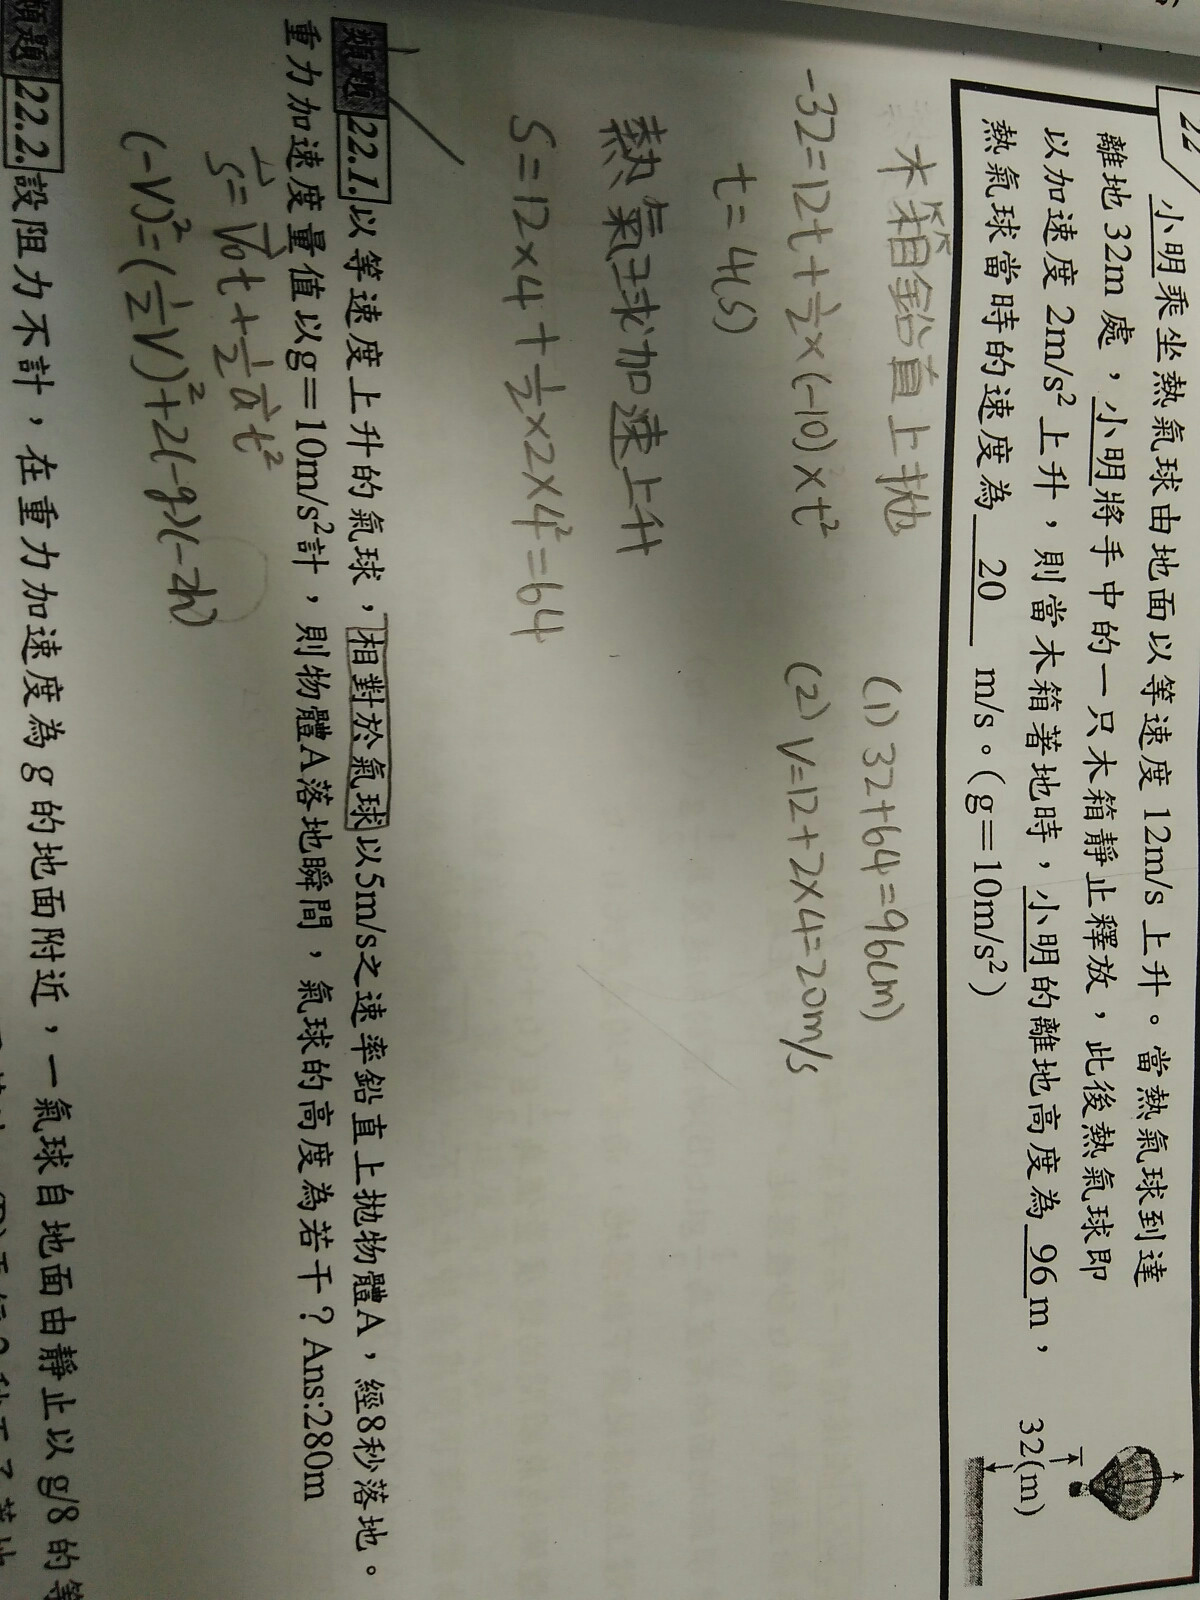 22
小明乘坐熱氣球由地面以等速度 12m/s 上升。當熱氣球到達
離地 32m 處，小明將手中的一只木箱靜止釋放，此後熱氣球即
以加速度 2m/s² 上升，則當木箱著地時，小明的離地高度為 96 m，
熱氣球當時的速度為 20 m/s。(g＝10m/s²)
32(m)
木箱鉛直上拋
-32=12t+½×(-10)×t²
t=4(s)
熱氣球加速上升
S=12×4+½×2×4²=64
(1) 32+64=96(m)
(2) V=12+2×4=20m/s
類題 22.1. 以等速度上升的氣球，相對於氣球以5m/s之速率鉛直上拋物體A，經8秒落地。
重力加速度量值以g＝10m/s²計，則物體A落地瞬間，氣球的高度為若干？Ans:280m
S=V₀t+½at²
(-V)²=(½V)²+2(-g)(-2h)
類題 22.2. 設阻力不計，在重力加速度為g的地面附近，一氣球自地面由靜止以g/8的等